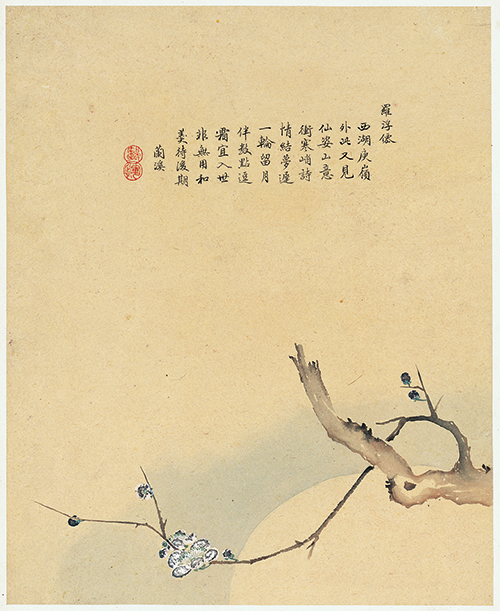 羅浮
西湖庾嶺
外此又見
仙姿山意
衝寒峭詩
情結夢遲
一輪留月
伴數點逗
霜宜入世
非無用和
羹待後期
蘭溪